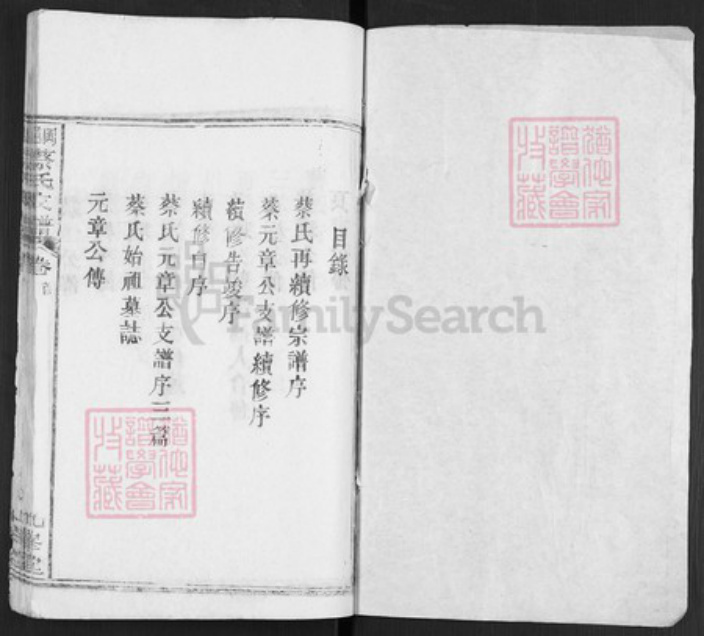 目錄
蔡氏再續修宗譜序
蔡元章公支譜續修序
續修告竣序
續修自序
蔡氏元章公支譜序三篇
蔡氏始祖墓誌
元章公傳
蔡氏支譜
卷首
FamilySearch